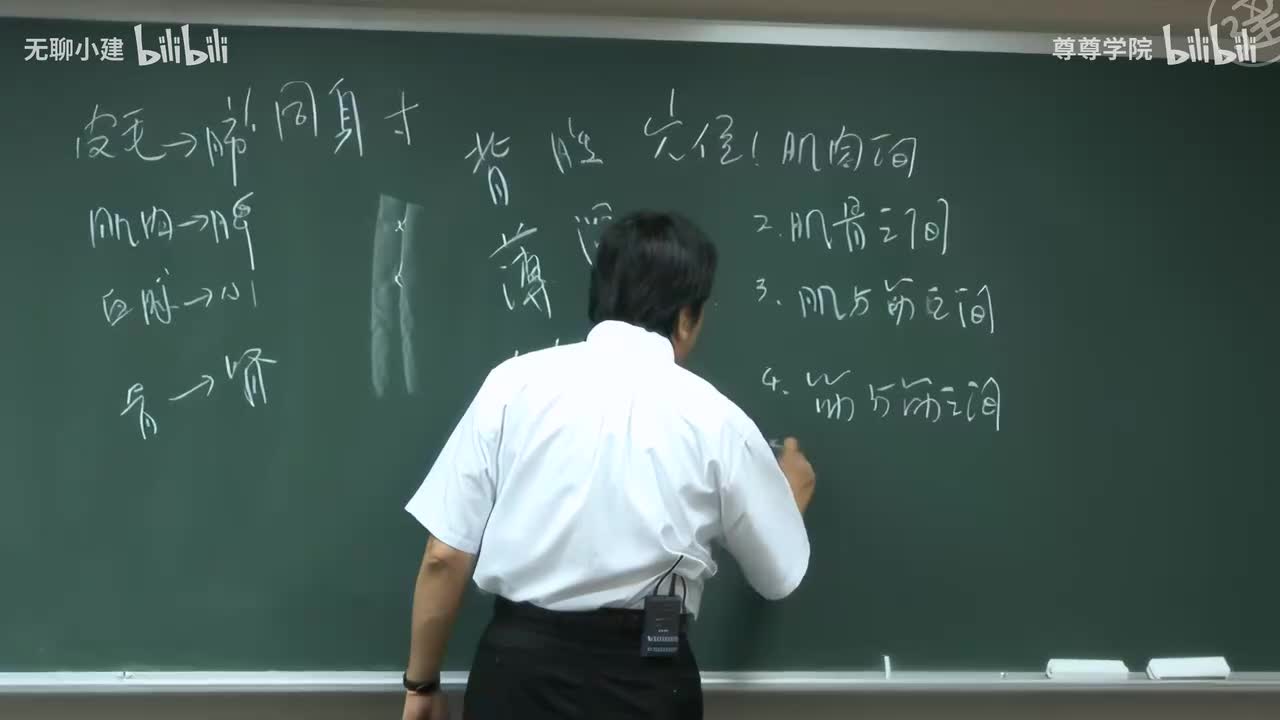 无聊小建 bilibili
尊尊学院 bilibili
皮毛→肺!
肌肉→脾
血脉→心
骨→肾
同身寸
背 胜
薄
穴位! 肌肉间
2. 肌骨之间
3. 肌与筋之间
4. 筋与筋之间